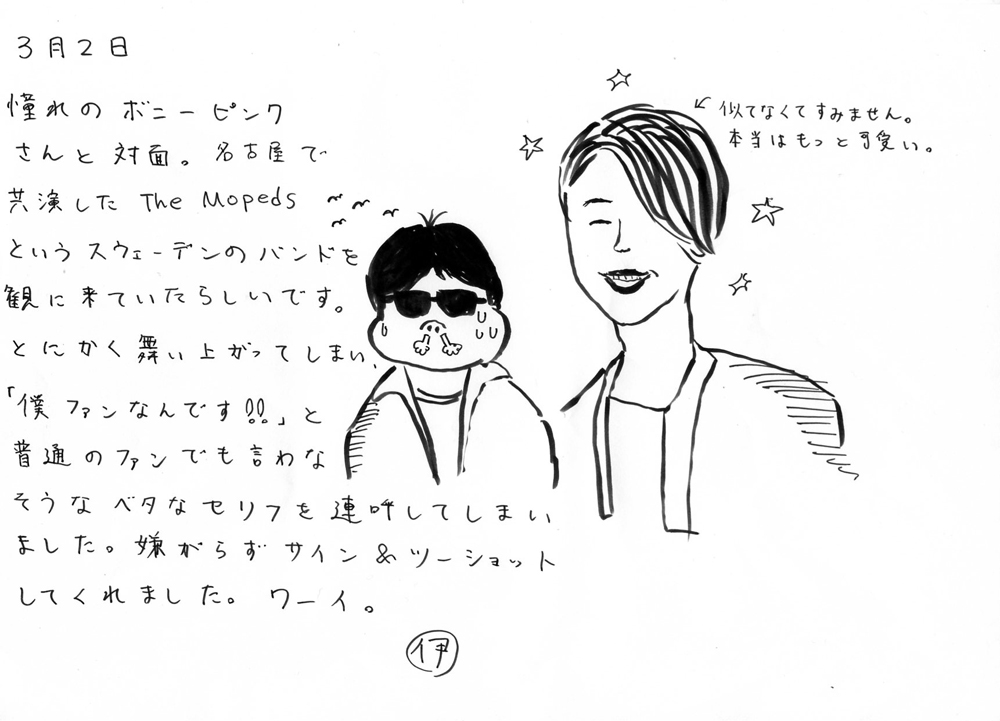 3月2日
憧れの ボニーピンク
さんと 対面。名古屋で
共演した The Mopeds
という スウェーデンの バンドを
観に 来ていたらしいです。
とにかく 舞い上がってしまい、
「僕 ファンなんです!!」と
普通の ファンでも言わな
そうな ベタな セリフを 連呼してしまい
ました。嫌がらず サイン & ツーショット
してくれました。ワーイ。
伊
← 似てなくてすみません。
本当はもっと可愛い。